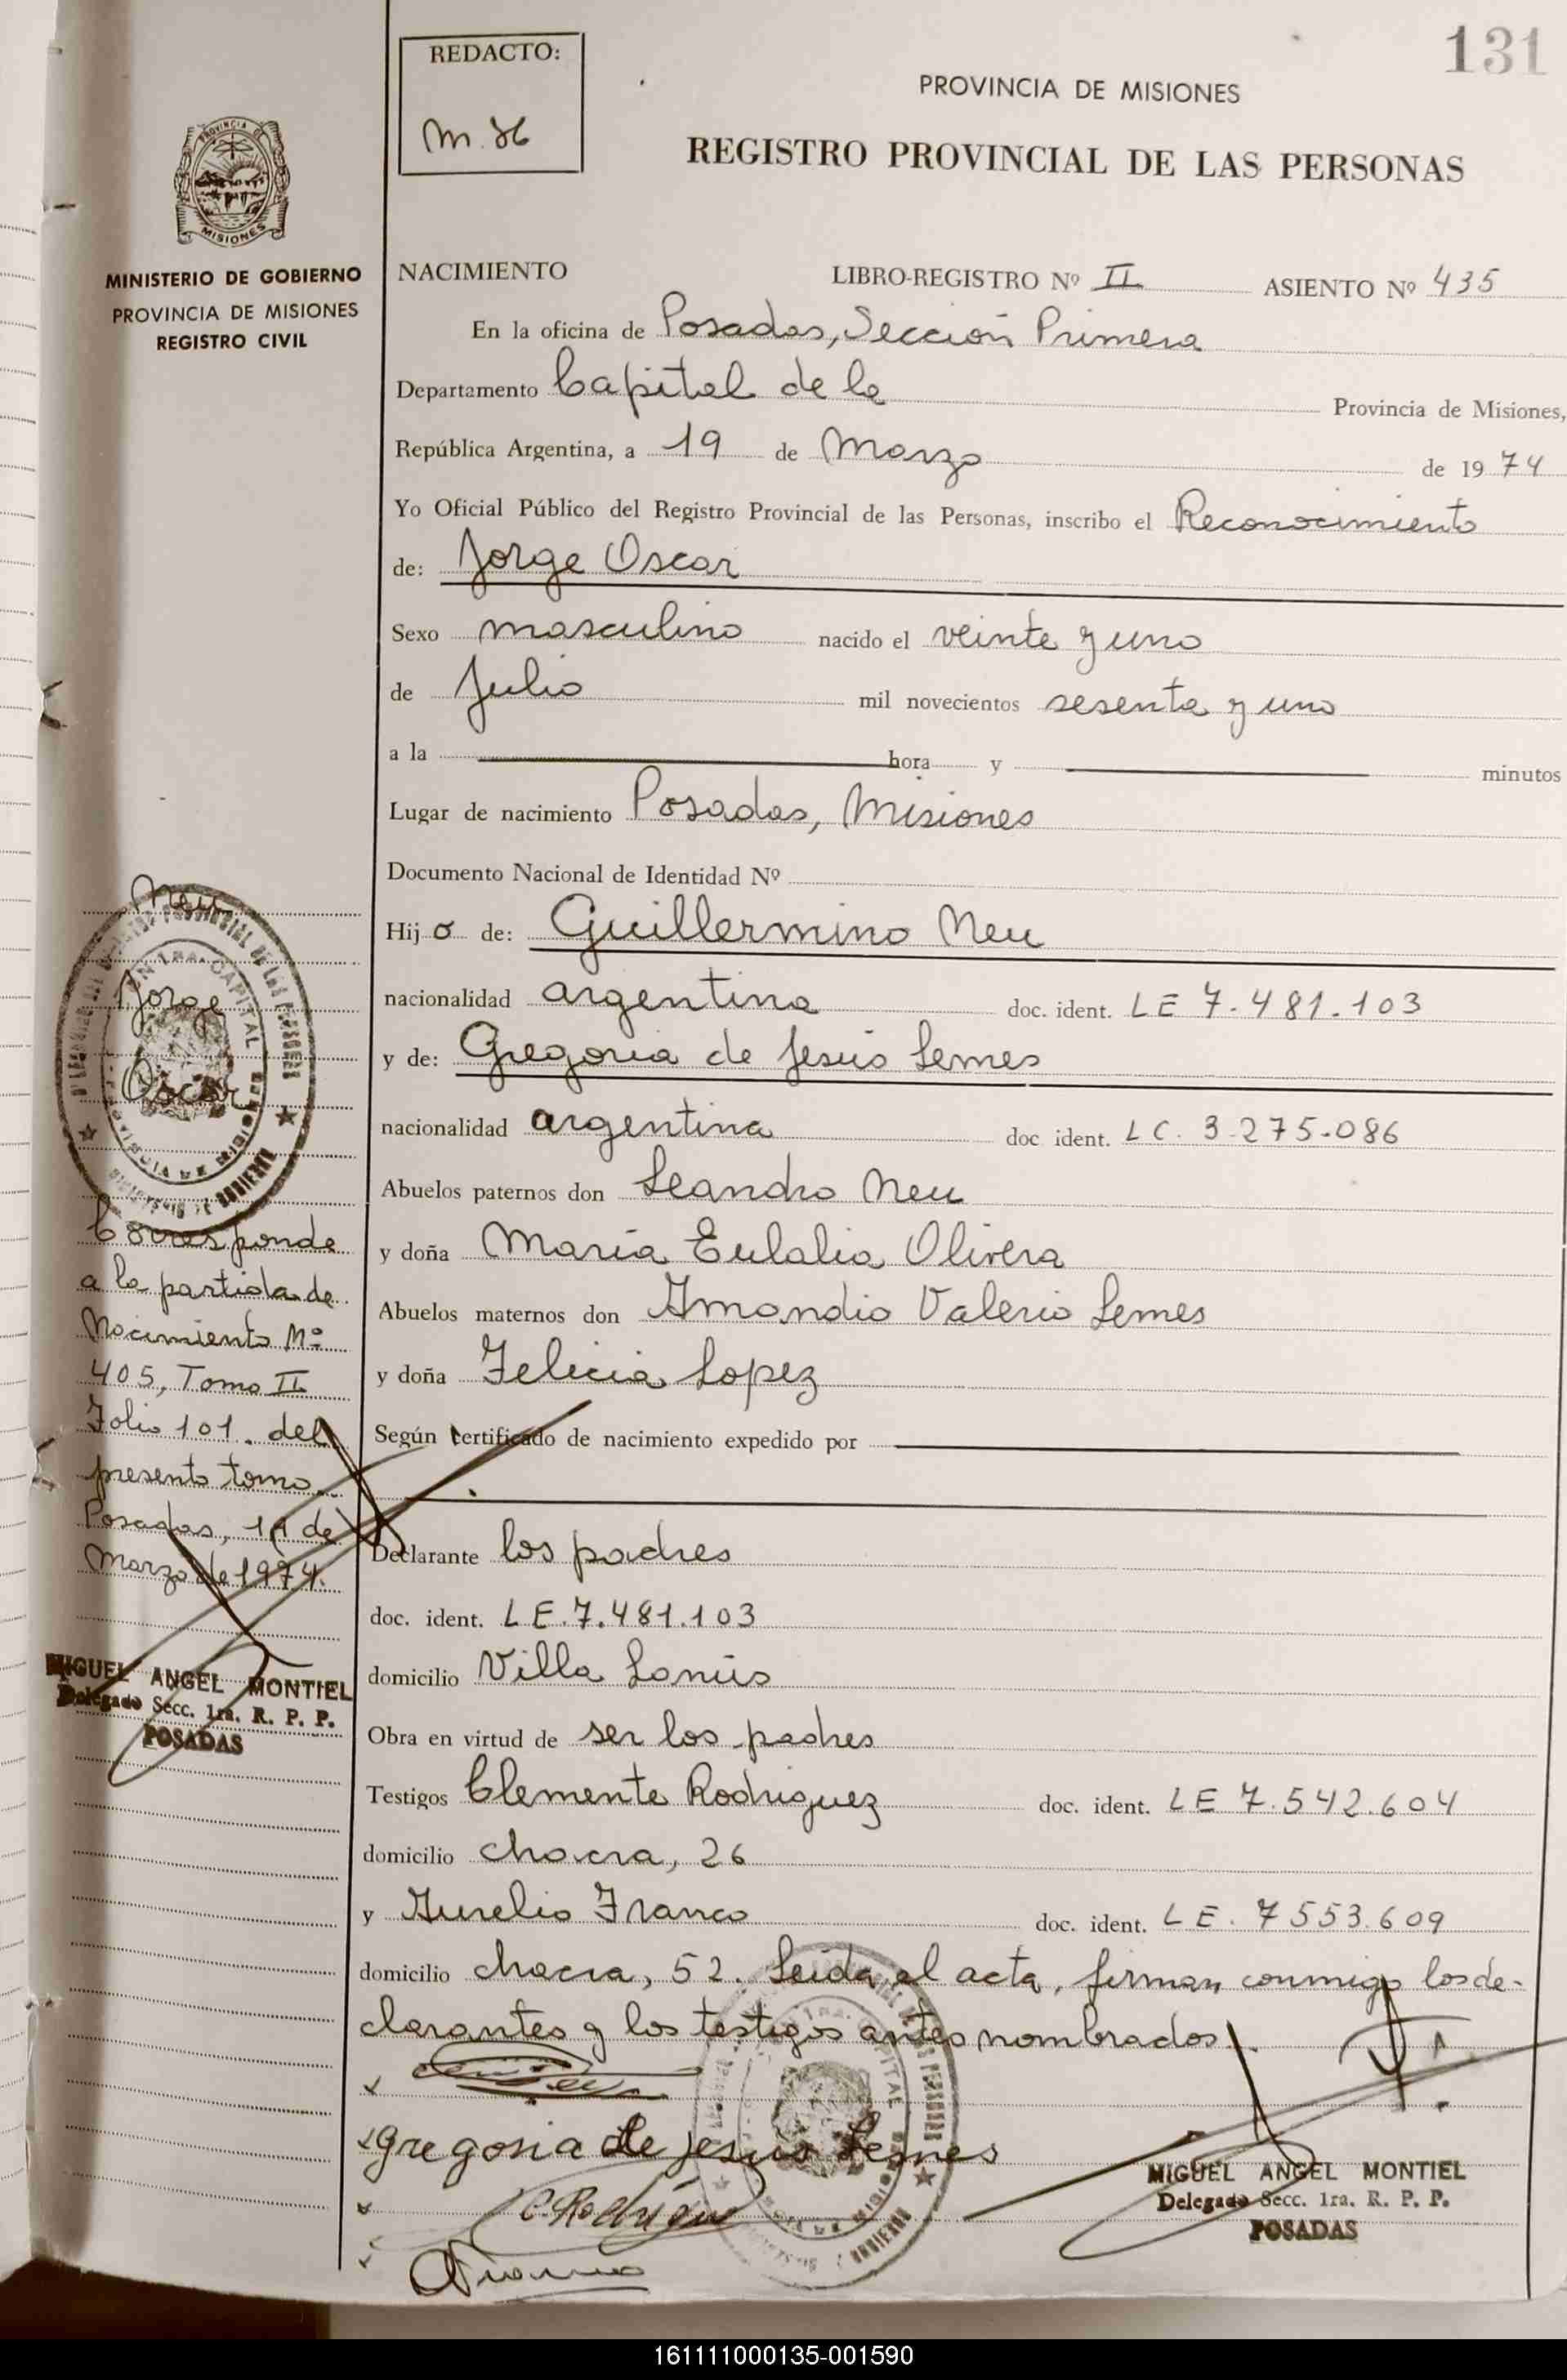 131
REDACTO:
PROVINCIA DE MISIONES
REGISTRO PROVINCIAL DE LAS PERSONAS
PROVINCIA DE
MISIONES
MINISTERIO DE GOBIERNO
PROVINCIA DE MISIONES
REGISTRO CIVIL
NACIMIENTO LIBRO-REGISTRO Nº II ASIENTO Nº 435
En la oficina de Posadas, Sección Primera
Departamento Capital de la Provincia de Misiones,
República Argentina, a 19 de Marzo de 1974
Yo Oficial Público del Registro Provincial de las Personas, inscribo el Reconocimiento
de: Jorge Oscar
Sexo masculino nacido el veinte y uno
de Julio mil novecientos sesenta y uno
a la hora y minutos
Lugar de nacimiento Posadas, Misiones
Documento Nacional de Identidad Nº
Hijo de: Guillermino Neu
nacionalidad argentina doc. ident. LE 7.481.103
y de: Gregoria de Jesús Lemes
nacionalidad argentina doc ident. LC. 3.275.086
Abuelos paternos don Leandro Neu
y doña María Eulalia Olivera
Abuelos maternos don Amandio Valerio Lemes
y doña Felicia Lopez
Según certificado de nacimiento expedido por
Declarante los padres
doc. ident. LE. 7.481.103
domicilio Villa Lanús
Obra en virtud de ser los padres
Testigos Clemente Rodriguez doc. ident. LE 7.542.604
domicilio chacra, 26
y Aurelio Franco doc. ident. LE. 7553.609
domicilio chacra, 52. Leida el acta, firman conmigo los de-
clarantes y los testigos antes nombrados.
Gregoria de Jesus Lemes
C. Rodrigu
MIGUEL ANGEL MONTIEL
Delegado Secc. 1ra. R. P. P.
POSADAS
Neu
Jorge
Oscar
Corresponde
a la partida de
Nacimiento Nº
405, Tomo II
Folio 101. del
presente tomo.
Posadas, 19 de
Marzo de 1974.
MIGUEL ANGEL MONTIEL
Delegado Secc. 1ra. R. P. P.
POSADAS
161111000135-001590